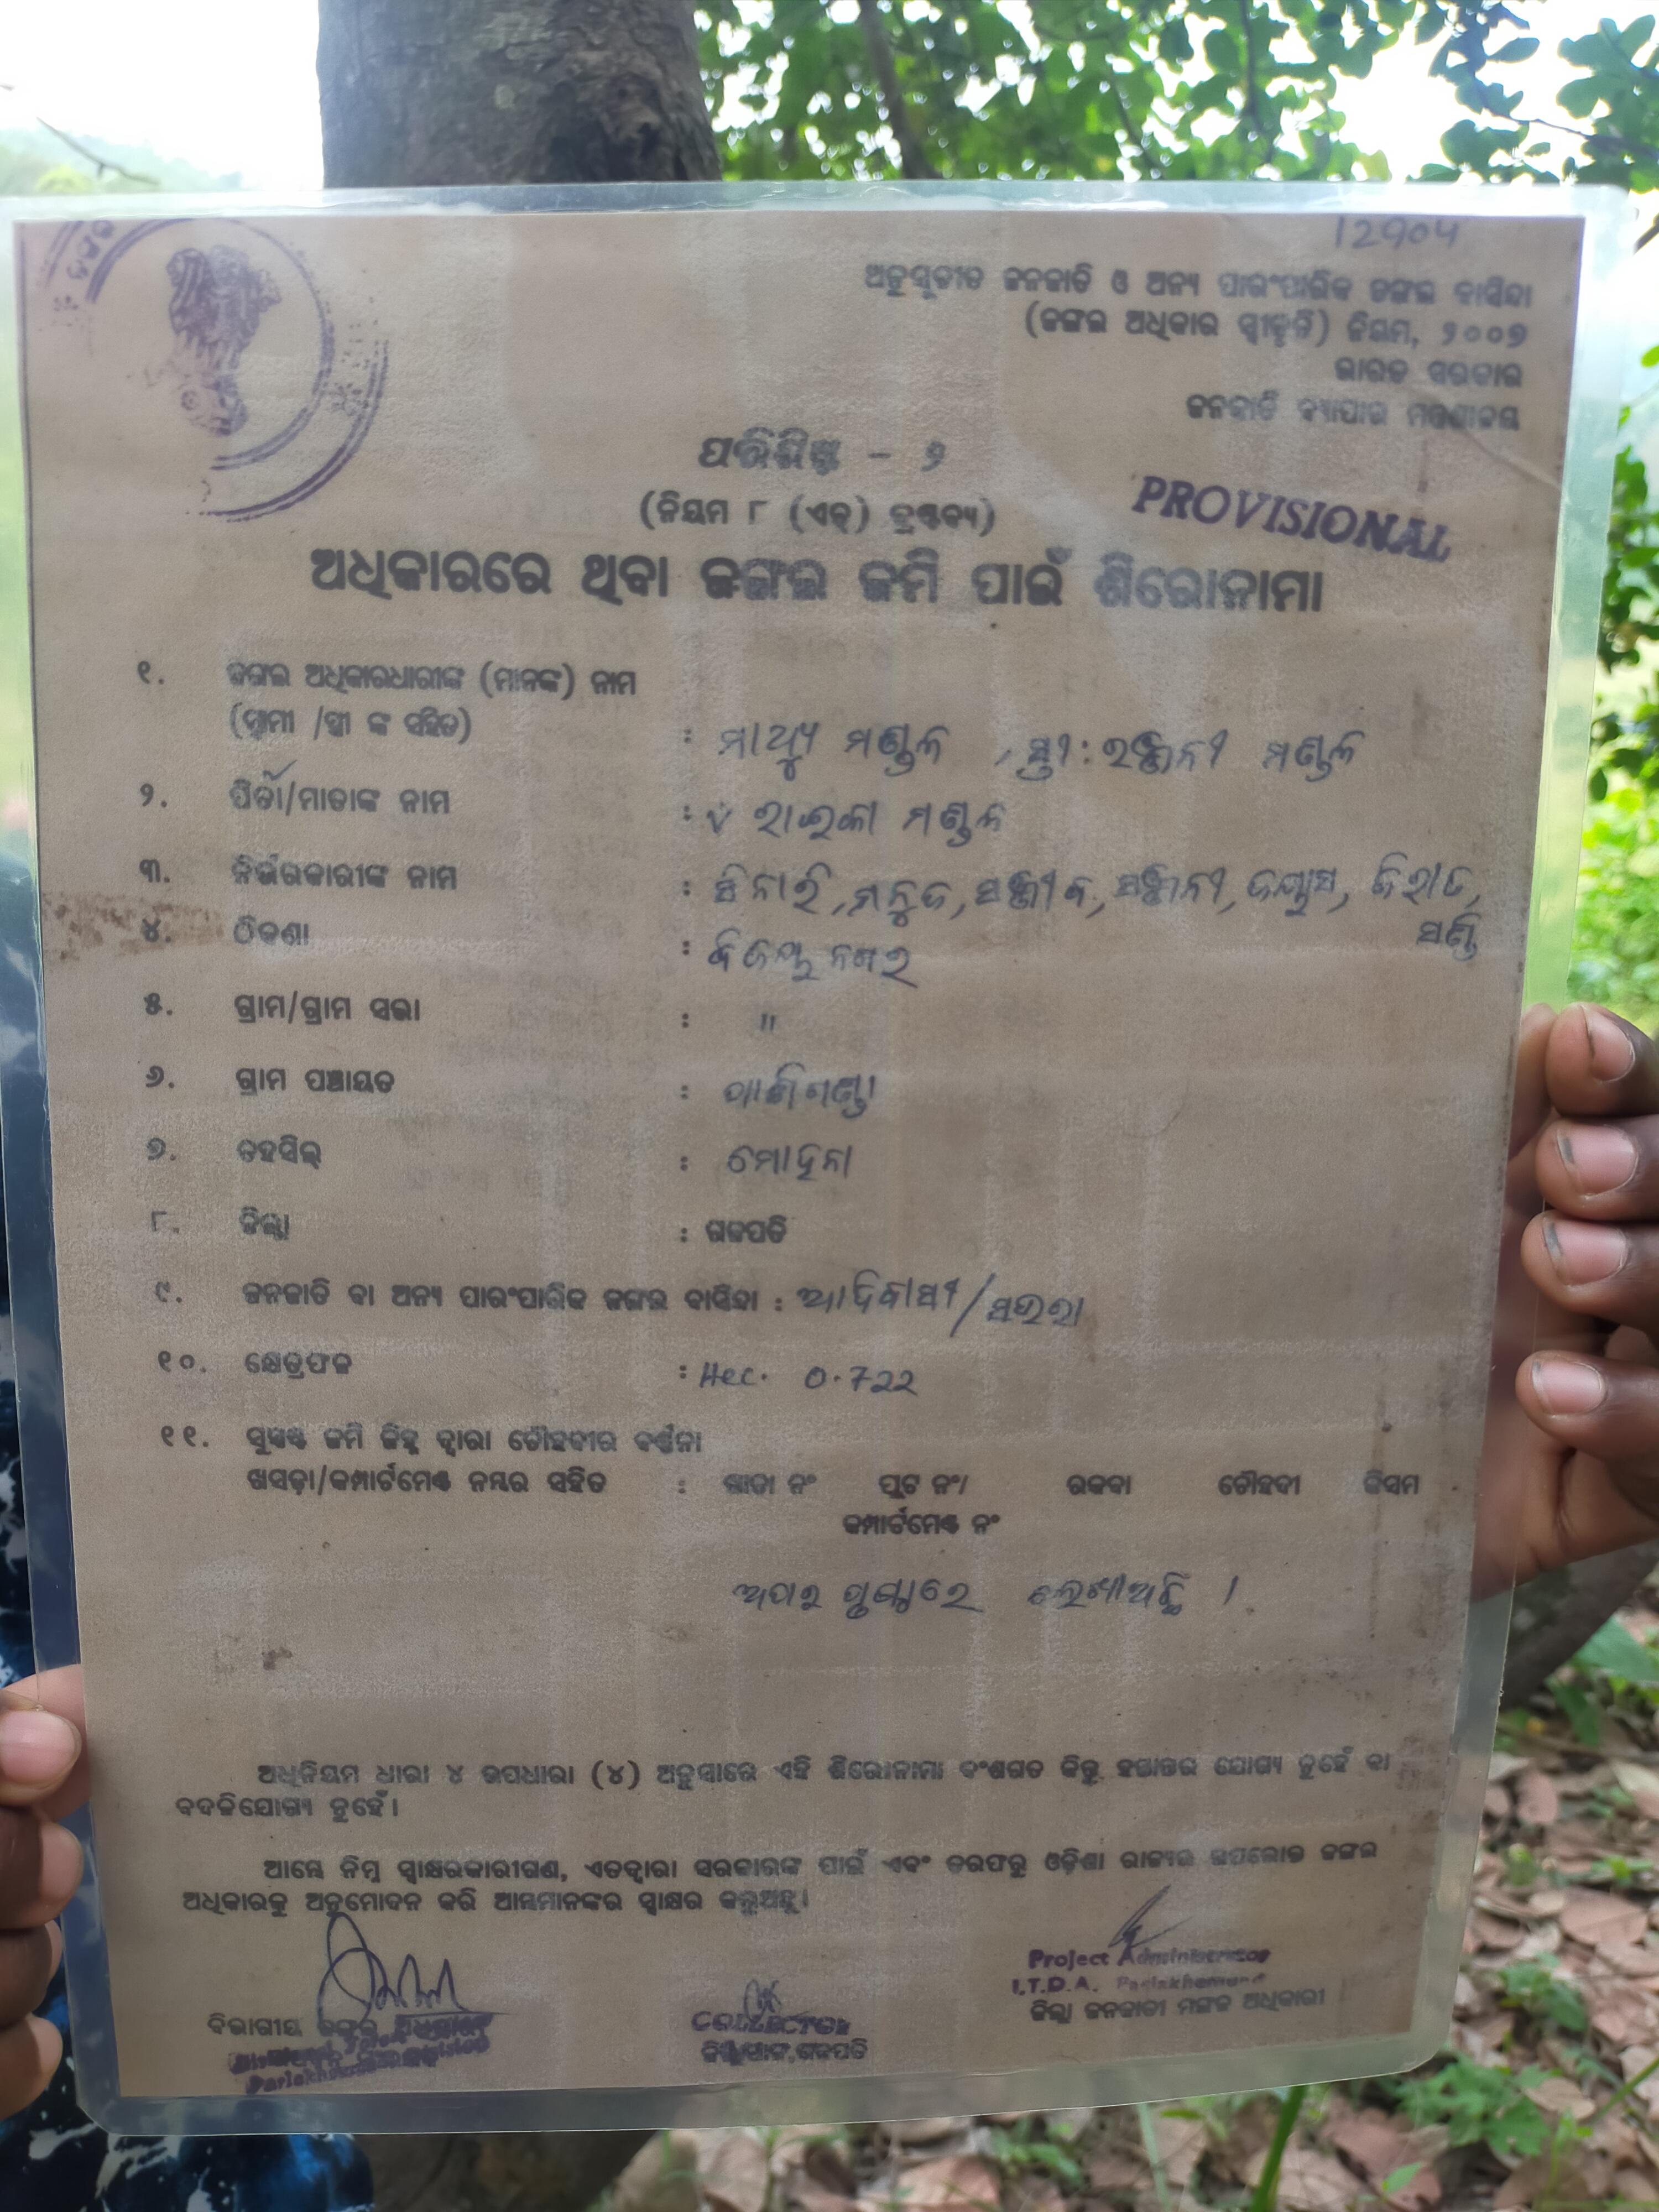 12904
ଅନୁସୂଚୀତ ଜନଜାତି ଓ ଅନ୍ୟ ପାରଂପାରିକ ଜଙ୍ଗଲ ବାସିନ୍ଦା
(ଜଙ୍ଗଲ ଅଧିକାର ସ୍ୱୀକୃତି) ନିୟମ, ୨୦୦୭
ଭାରତ ସରକାର
ଜନଜାତି ବ୍ୟାପାର ମନ୍ତ୍ରଣାଳୟ
ପରିଶିଷ୍ଟ - ୨
(ନିୟମ ୮ (ଏଚ୍) ଦ୍ରଷ୍ଟବ୍ୟ)
PROVISIONAL
ଅଧିକାରରେ ଥିବା ଜଙ୍ଗଲ ଜମି ପାଇଁ ଶିରୋନାମା
୧. ଜଙ୍ଗଲ ଅଧିକାରଧାରୀଙ୍କ (ମାନଙ୍କ) ନାମ
(ସ୍ୱାମୀ /ସ୍ତ୍ରୀ ଙ୍କ ସହିତ) : ମାଥ୍ୟୁ ମଣ୍ଡଳ , ସ୍ତ୍ରୀ : ରଞ୍ଜିନୀ ମଣ୍ଡଳ
୨. ପିତା/ମାତାଙ୍କ ନାମ : ମଣ୍ଡଳ
୩. ନିର୍ଭରକାରୀଙ୍କ ନାମ :
୪. ଠିକଣା : ବିଜୟ ନଗର
୫. ଗ୍ରାମ/ଗ୍ରାମ ସଭା : "
୬. ଗ୍ରାମ ପଞ୍ଚାୟତ : ପାଣିଗଣ୍ଡା
୭. ତହସିଲ୍ : ମୋହନା
୮. ଜିଲ୍ଲା : ଗଜପତି
୯. ଜନଜାତି ବା ଅନ୍ୟ ପାରଂପାରିକ ଜଙ୍ଗଲ ବାସିନ୍ଦା : ଆଦିବାସୀ/ସଉରା
୧୦. କ୍ଷେତ୍ରଫଳ : Hec. 0.722
୧୧. ସୁସ୍ପଷ୍ଟ ଜମି ଚିହ୍ନ ଦ୍ୱାରା ଚୌହଦୀର ବର୍ଣ୍ଣନା
ଖସଡ଼ା/କମ୍ପାର୍ଟମେଣ୍ଟ ନମ୍ବର ସହିତ : ଖାତା ନଂ ପ୍ଲଟ ନଂ/ ରକବା ଚୌହଦୀ କିସମ
କମ୍ପାର୍ଟମେଣ୍ଟ ନଂ
ଅପର ପୃଷ୍ଠାରେ ଲେଖାଅଛି ।
ଅଧିନିୟମ ଧାରା ୪ ଉପଧାରା (୪) ଅନୁସାରେ ଏହି ଶିରୋନାମା ବଂଶଗତ କିନ୍ତୁ ହସ୍ତାନ୍ତର ଯୋଗ୍ୟ ନୁହେଁ ବା
ବଦଳିଯୋଗ୍ୟ ନୁହେଁ।
ଆମ୍ଭେ ନିମ୍ନ ସ୍ୱାକ୍ଷରକାରୀଗଣ, ଏତଦ୍ୱାରା ସରକାରଙ୍କ ପାଇଁ ଏବଂ ତରଫରୁ ଓଡ଼ିଶା ରାଜ୍ୟର ଉପରୋକ୍ତ ଜଙ୍ଗଲ
ଅଧିକାରକୁ ଅନୁମୋଦନ କରି ଆମ୍ଭମାନଙ୍କର ସ୍ୱାକ୍ଷର କରୁଅଛୁ।
Project Administrator
I.T.D.A. Parlakhemundi
ଜିଲ୍ଲା ଜନଜାତୀ ମଙ୍ଗଳ ଅଧିକାରୀ
ବିଭାଗୀୟ ଜଙ୍ଗଲ ଅଧିକାରୀ
COLLECTOR
ଜିଲ୍ଲାପାଳ, ଗଜପତି